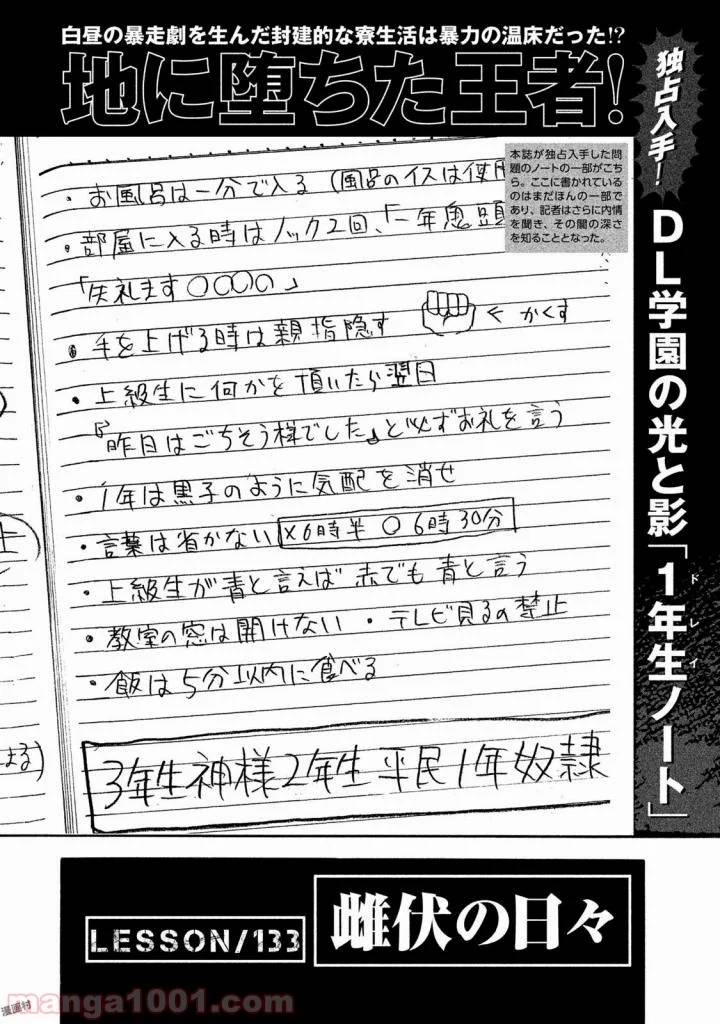 白昼の暴走劇を生んだ封建的な寮生活は暴力の温床だった!?
地に堕ちた王者!
独占入手!
DL学園の光と影「1年生ノート」
ドレイ
本誌が独占入手した問
題のノートの一部がこち
ら。ここに書かれている
のはまだほんの一部で
あり、記者はさらに内情
を聞き、その闇の深さ
を知ることとなった。
・お風呂は一分で入る(風呂のイスは使用
・部屋に入る時はノック2回、「一年鬼頭
「失礼ます○○○の」
・手を上げる時は親指隠す ← かくす
・上級生に何かを頂いたら翌日
『昨日はごちそう様でした』と必ずお礼を言う
・1年は黒子のように気配を消せ
・言葉は省かない ×6時半 ○6時30分
・上級生が青と言えば赤でも青と言う
・教室の窓は開けない ・テレビ見るの禁止
・飯は5分以内に食べる
3年生神様2年生平民1年奴隷
まる)
LESSON/133
雌伏の日々
manga1001.com
漫画村